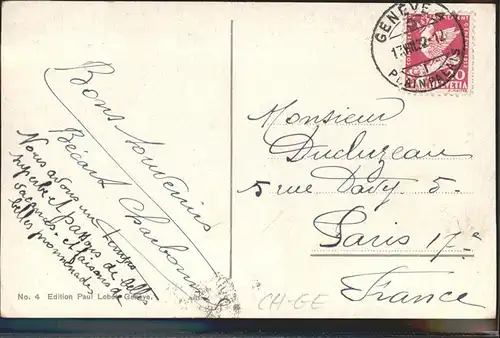 Bons Souvenirs
Bécart Charbonn
Nous avons un temps
superbe et passons de belles
vacances et faisons de
belles promenades
No. 4 Edition Paul Genève.
GENÈVE
13 VIII 32-12
PLAINPALAIS
HELVETIA
Monsieur
Ducluzeau
5 rue Davy 5.
Paris 17e
France
CH-GE